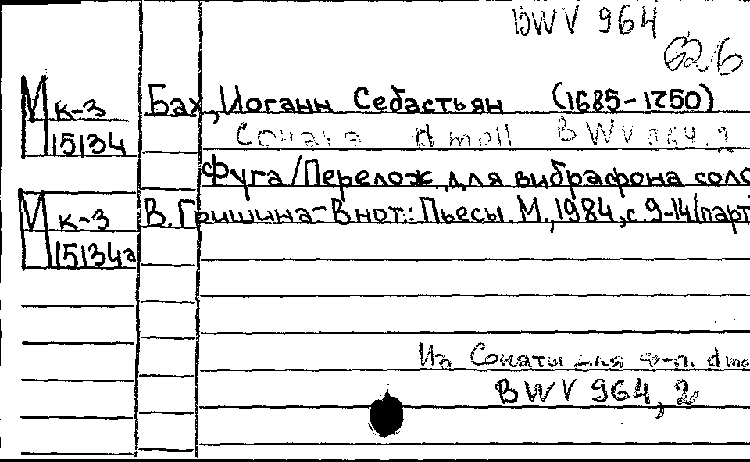 BWV 964
626
М к-3 Бах, Иоганн Себастьян (1685-1750)
15134 Соната d moll BWV 964,2
Фуга/Перелож. для вибрафона соло
М к-3 В. Гришина-В нот.: Пьесы М., 1984, с 9-14 (парт
15134а
Из Сонаты для ф-п. d mo
BWV 964, 2